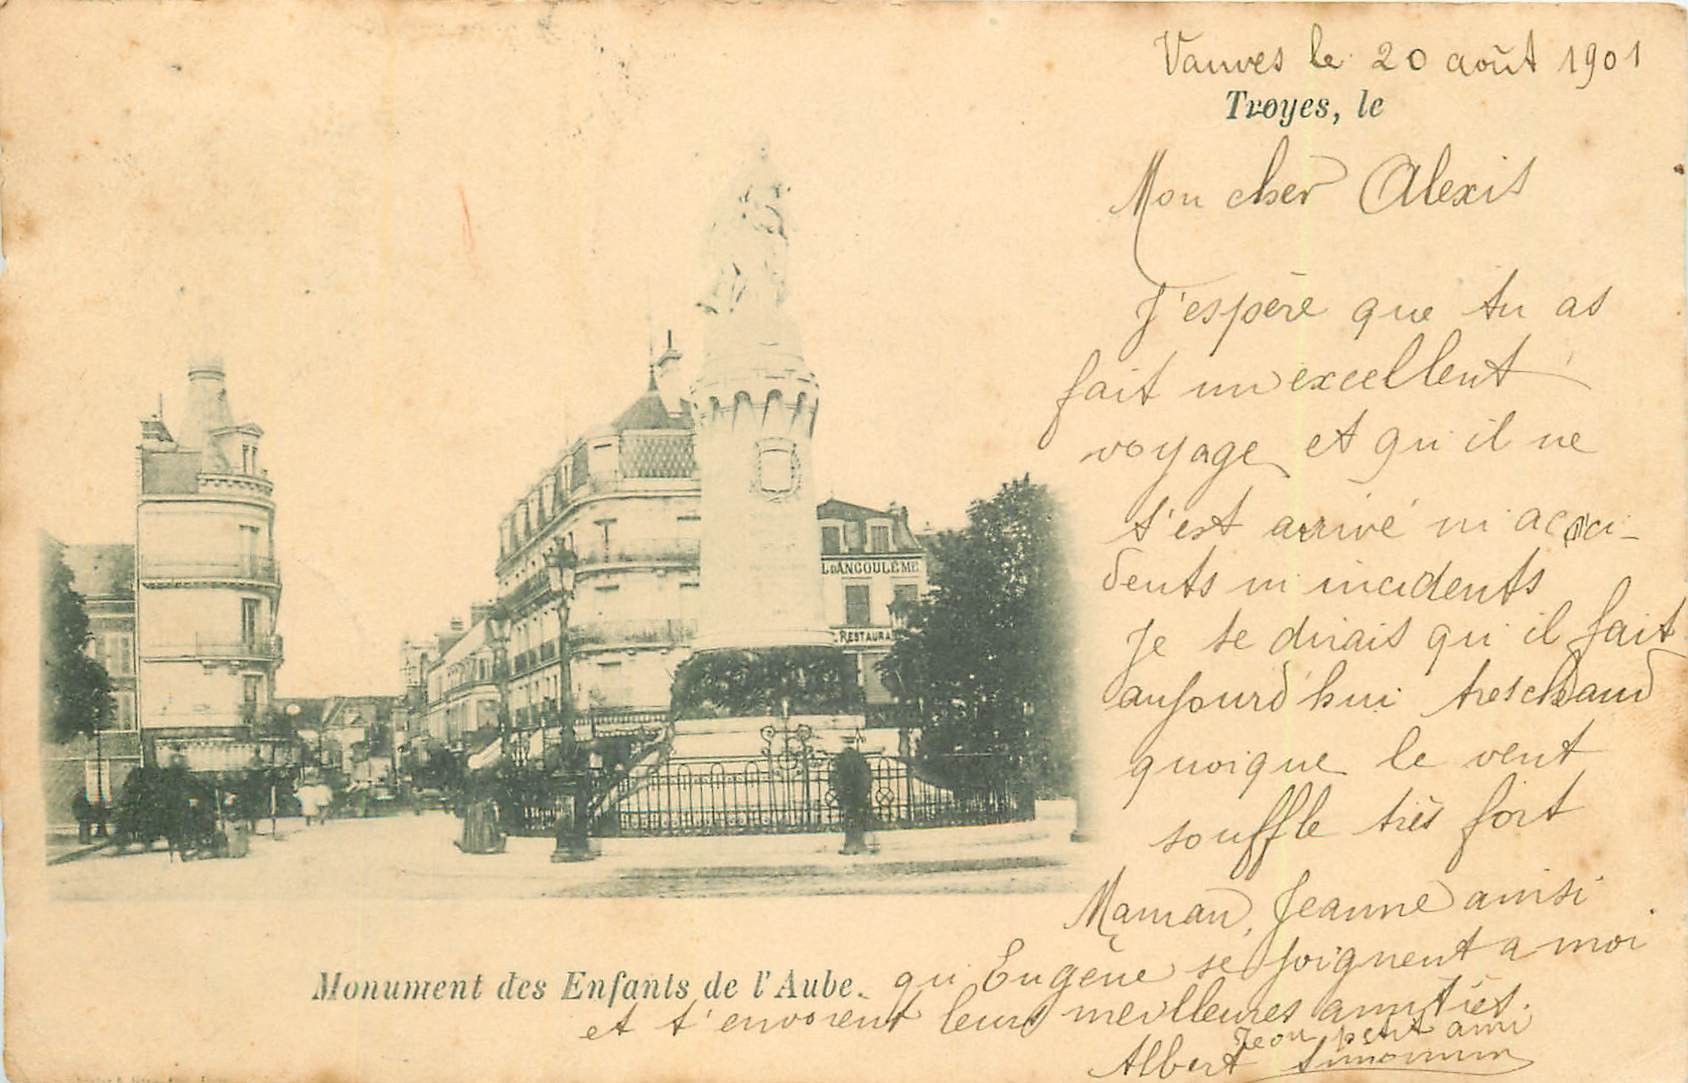 Vanves le 20 août 1901
Troyes, le
Mon cher Alexis
J'espère que tu as
fait un excellent
voyage et qu'il ne
t'est arrivé ni acci-
dents ni incidents
Je te dirais qu'il fait
aujourd'hui très chaud
quoique le vent
souffle très fort
Maman, Jeanne ainsi
qu'Eugène se joignent a moi
et t'envoient leurs meilleures amitiés.
Ton petit ami
Albert Simonnin
L D'ANGOULÊME
RESTAURA
Monument des Enfants de l'Aube.